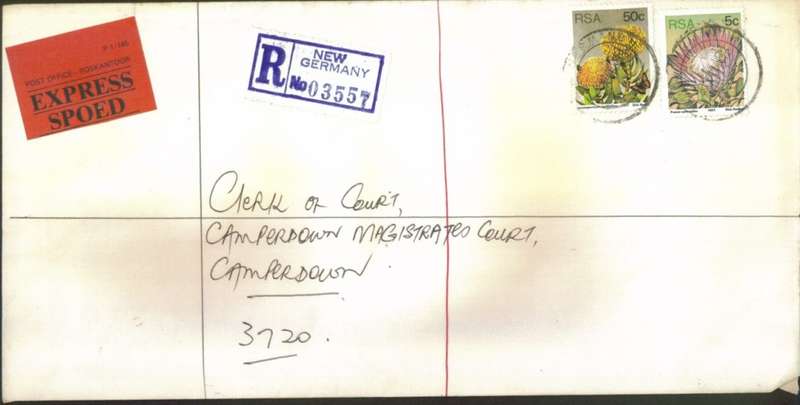 P 1/145
POST OFFICE - POSKANTOOR
EXPRESS
SPOED
R
NEW
GERMANY
No 03557
RSA 50c
RSA 5c
Clerk of Court,
CAMPERDOWN MAGISTRATES COURT,
CAMPERDOWN
3720.